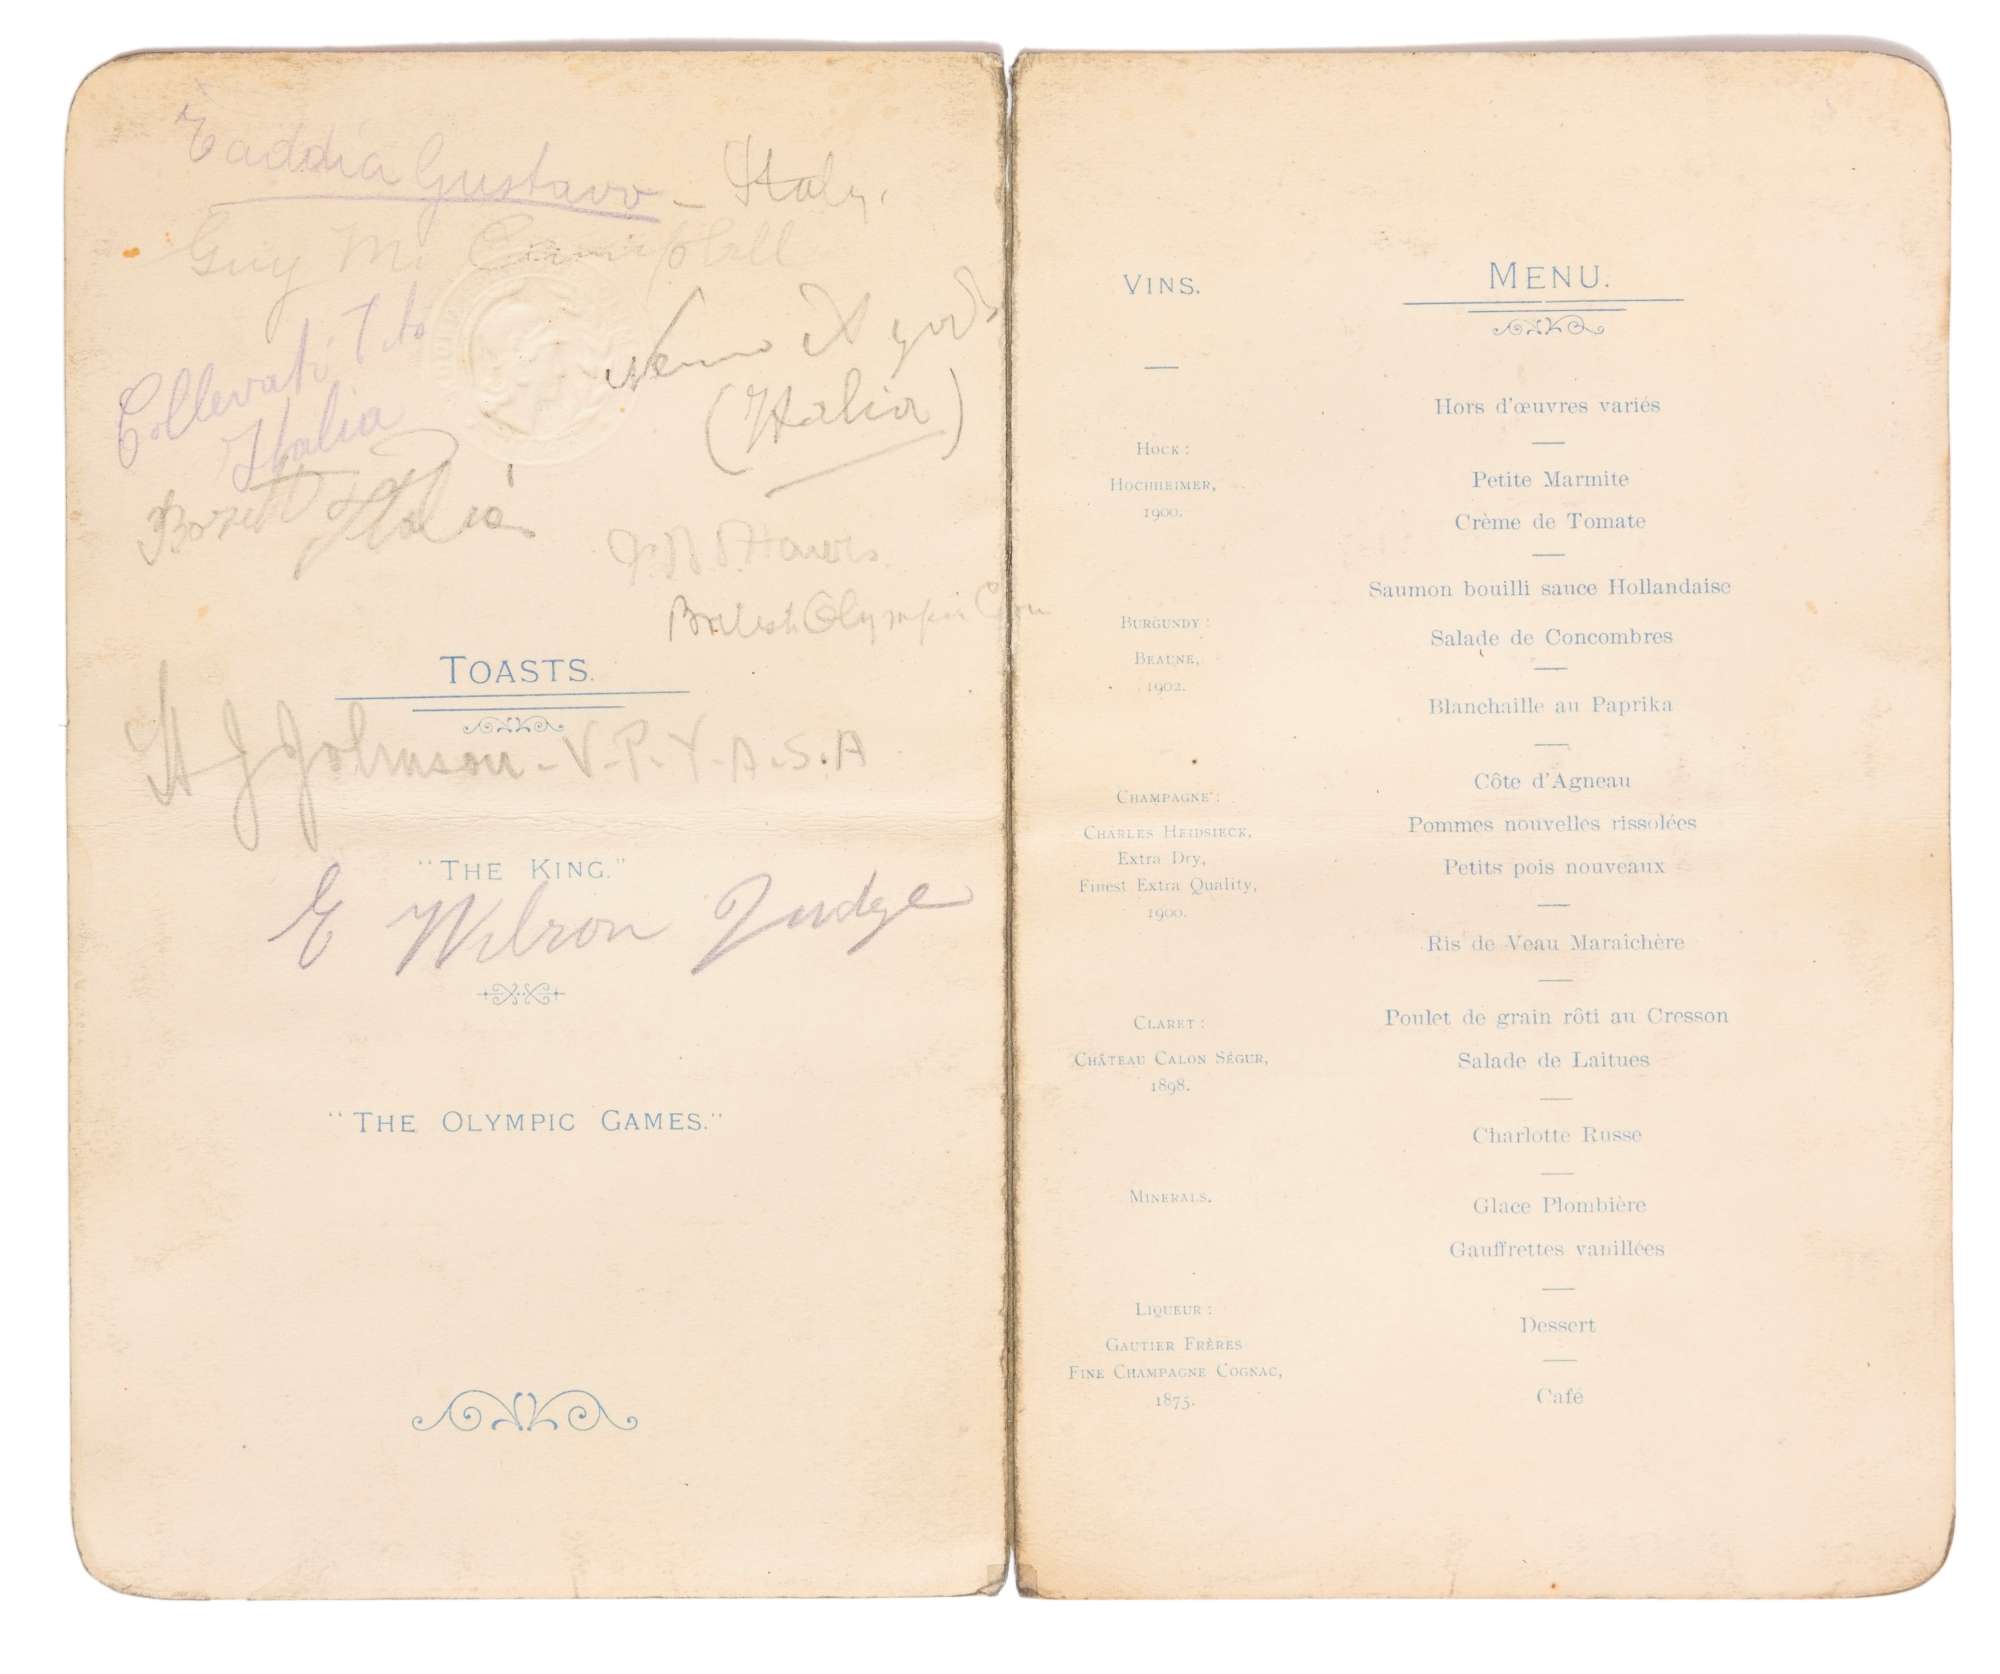 Taddia Gustavo - Italy.
Guy M. Campbell
Collevati Tito
Italia
Nemo Agodi
(Italia)
Italia
British Olympic Coun
TOASTS.
A J Johnson - V.P.Y.A.S.A
"THE KING."
E Wilson Judge
"THE OLYMPIC GAMES."
VINS.
HOCK:
HOCHHEIMER,
1900.
BURGUNDY:
BEAUNE,
1902.
CHAMPAGNE:
CHARLES HEIDSIECK,
Extra Dry,
Finest Extra Quality,
1900.
CLARET:
CHÂTEAU CALON SÉGUR,
1898.
MINERALS.
LIQUEUR:
GAUTIER FRÈRES
FINE CHAMPAGNE COGNAC,
1875.
MENU.
Hors d'œuvres variés
Petite Marmite
Crème de Tomate
Saumon bouilli sauce Hollandaise
Salade de Concombres
Blanchaille au Paprika
Côte d'Agneau
Pommes nouvelles rissolées
Petits pois nouveaux
Ris de Veau Maraîchère
Poulet de grain rôti au Cresson
Salade de Laitues
Charlotte Russe
Glace Plombière
Gauffrettes vanillées
Dessert
Café